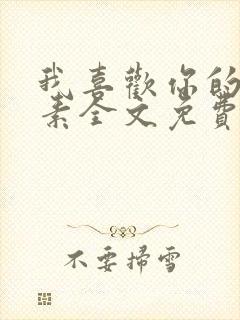 我喜歡你的
素全文免費
不要掃雪